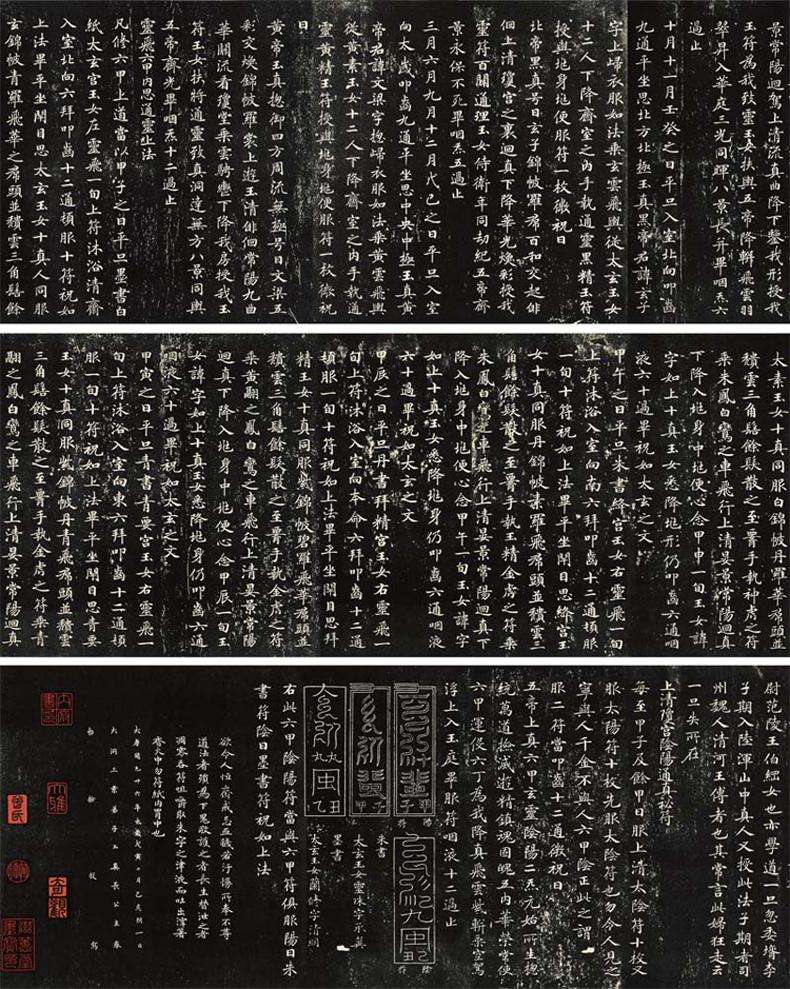 景常陽迴駕上清流真曲降下鑒我形授我
玉符為我致靈玉女扶輿五帝降軿飛雲羽
翠昇入華庭三光同暉八景長并畢咽炁六
過止
十月十一月壬癸之日平旦入室北向叩齒
九通平坐思北方北極玉真黑帝君諱玄子
字上歸衣服如法乘玄雲飛輿從太玄玉女
十二人下降齋室之內手執通靈黑精玉符
授與兆身兆便服符一枚微祝曰
北帝黑真号曰玄子錦帔羅帬百和交起徘
徊上清瓊宮之裏迴真下降華光煥彩授我
靈符百關通理玉女侍衛年同劫紀五帝齊
景永保不死畢咽炁五過止
三月六月九月十二月戊己之日平旦入室
向太歲叩齒九通平坐思中央中極玉真黃
帝君諱文梁字總歸衣服如法乘黃雲飛輿
從黃素玉女十二人下降齋室之內手執通
靈黃精玉符授與兆身兆便服符一枚微祝
曰
黃帝玉真總御四方周流無極号曰文梁五
彩交煥錦帔羅裳上遊玉清徘徊常陽九曲
華關流看瓊堂乘雲騁轡下降我房授我玉
符玉女扶將通靈致真洞達無方八景同輿
五帝齊光畢咽炁十二過止
靈飛六甲內思通靈上法
凡修六甲上道當以甲子之日平旦墨書白
紙太玄宮玉女左靈飛一旬上符沐浴清齋
入室北向六拜叩齒十二通頓服十符祝如
上法畢平坐閉目思太玄玉女十真人同服
玄錦帔青羅飛華之帬頭並積雲三角髻餘
太素玉女十真同服白錦帔丹羅華帬頭並
積雲三角髻餘髮散之至腰手執神虎之符
乘朱鳳白鸞之車飛行上清晏景常陽迴真
下降入兆身中兆便心念甲申一旬玉女諱
字如上十真玉女悉降兆形仍叩齒六通咽
液六十過畢祝如太玄之文
甲午之日平旦朱書絳宮玉女右靈飛一旬
上符沐浴入室向南六拜叩齒十二通頓服
一旬十符祝如上法畢平坐閉目思絳宮玉
女十真同服丹錦帔素羅飛帬頭並積雲三
角髻餘髮散之至腰手執玉精金虎之符乘
朱鳳白鸞之車飛行上清晏景常陽迴真下
降入兆身中兆便心念甲午一旬玉女諱字
如上十真玉女悉降兆身仍叩齒六通咽液
六十過畢祝如太玄之文
甲辰之日平旦丹書拜精宮玉女右靈飛一
旬上符沐浴入室向本命六拜叩齒十二通
頓服一旬十符祝如上法畢平坐閉目思拜
精玉女十真同服紫錦帔碧羅飛華帬頭並
積雲三角髻餘髮散之至腰手執金虎之符
乘黃翮之鳳白鸞之車飛行上清晏景常陽
迴真下降入兆身中兆便心念甲辰一旬玉
女諱字如上十真玉女悉降兆身仍叩齒六通
咽液六十過畢祝如太玄之文
甲寅之日平旦青書青要宮玉女右靈飛一
旬上符沐浴入室向東六拜叩齒十二通頓
服一旬十符祝如上法畢平坐閉目思青要
玉女十真同服紫錦帔丹青飛帬頭並積雲
三角髻餘髮散之至腰手執金虎之符乘青
翮之鳳白鸞之車飛行上清晏景常陽迴真
尉范陵王伯綏女也亦學道一旦忽委壻李
子期入陸渾山中真人又授此法子期者司
州魏人清河王傅者也其常言此婦狂走云
一旦失所在
上清瓊宮陰陽通真祕符
每至甲子及餘甲日服上清太陰符十枚又
服太陽符十枚先服太陰符也勿令人見之
寧與人千金不與人六甲陰正此之謂
服二符當叩齒十二通微祝曰
五帝上真六甲玄靈陰陽二炁元始所生總
統萬道撫滅遊精鎮魂固魄五內華榮常使
六甲運役六丁為我降真飛雲紫軿乘空駕
浮上入玉庭畢服符咽液十二過止
陽符
陰符
朱書
太玄玉女靈珠字承翼
墨書
太玄玉女蘭脩字清明
右此六甲陰陽符當與六甲符俱服陽日朱
書符陰日墨書符祝如上法
欲人人恒齋戒忌血穢若汙慢所奉
道法者須為下鬼敬護之者
涸寒吞符咀嚼取朱字之津液而吐出滓
大唐開元廿六年太歲戊寅九月己未朔一日
大洞三景弟子玉真長公主奉
敕檢校寫